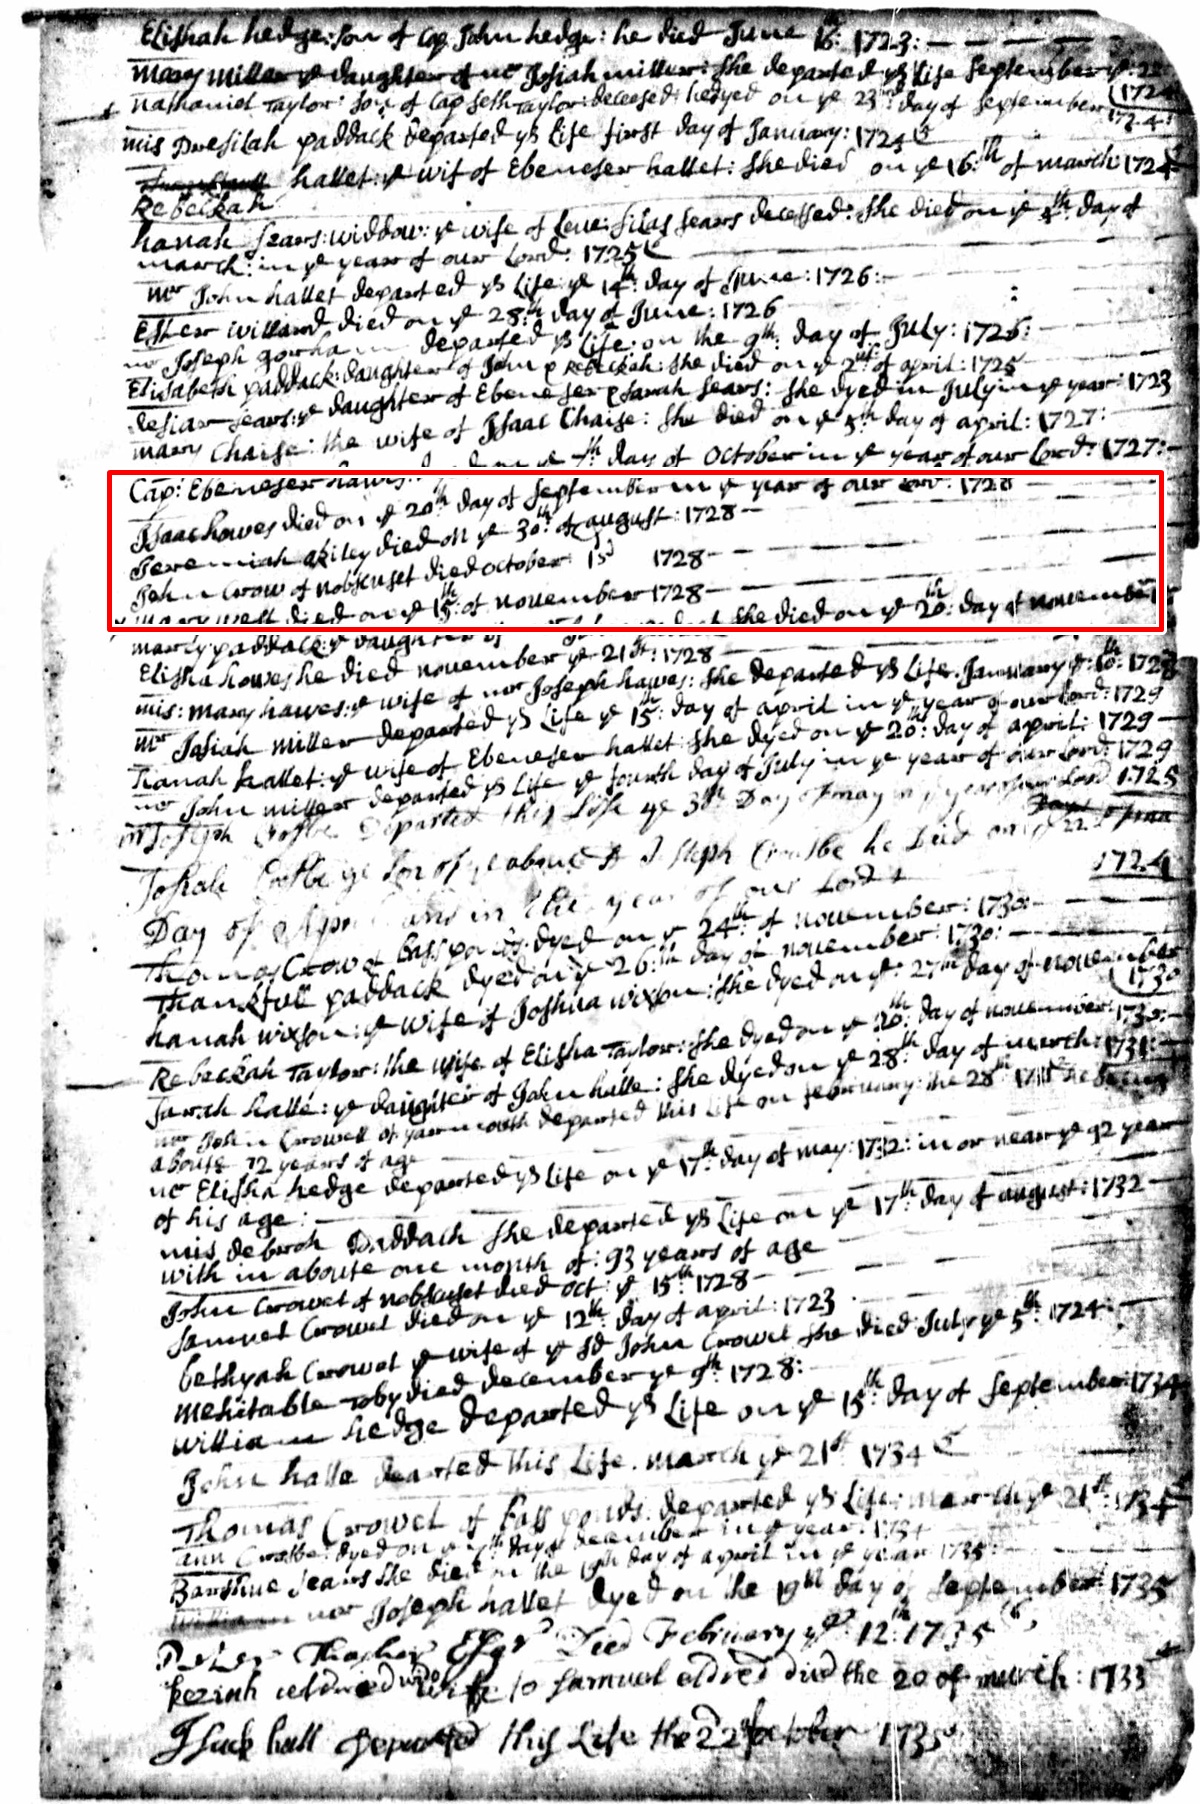 Elishah hedge: son of Cap John hedge: he died June 16: 1723:
mary miller ye daughter of mr Josiah miller: she departed ys Life September ye: 22
1724
nathaniel Taylor: son of Cap Seth Taylor: deceased: hedyed on ye 23 day of September
1724:
mis Dresilah paddack departed ys Life first day of January: 1724/5
hallet: ye wif of Ebeneser hallet: she died on ye 16:th of march: 172
Rebeckah
hanah sears: widdow: ye wife of Leue: Silas sears decessed: she died on ye day of
march: in ye year of our Lord: 1725
mr John hallet departed ys Life: ye 14th: day of June: 1726:
Ester willard, died on ye 28:th day of June: 1726
mr Joseph gorham departed ys Life: on the 9th: day of July: 1726:
Elisabeth paddack: daughter of John & Rebeckah: she died on ye 2nd: of april: 1725
desiar sears: ye daughter of Ebeneser & sarah sears: she dyed in July in ye year: 1723
mary Chaise: the wife of Jsaac Chaise: she died on ye 5th day of april: 1727:
on ye 7th: day of October in ye year of our Lord: 1727:
Cap: Ebeneser hawes:
Jsaac howes died on ye 20th day of September in ye year of our Lord: 1728
Jeremiah died on ye 30th: of august: 1728
John Crow of nobscuset died october 15 1728
mary west died on ye 15th: of november 1728
marcy paddack: ye daughter of she died on ye 20th: day of november
Elisha howes he died november ye 21st: 1728
mis: mary hawes: ye wife of mr Joseph hawes: she departed ys Life. January ye: 10:th: 1728
mr Josiah miller departed ys Life ye 15th: day of april in ye year of our Lord: 1729
hanah hallet: ye wife of Ebeneser hallet: she dyed on ye 20th: day of april: 1729
mr John miller departed ys Life ye fourth day of July in ye year of our Lord: 1729
mr Joseph Crosbe Departed this Life ye 30th Day of may in ye year of our Lord 1725
Josiah Crosbe ye son of ye aboue sd Joseph Crosbe he Died on ye 22
Day of in the year of our Lord
1724
Thomas Crow of bass ponds: dyed on ye 24th: of november: 1730:
Thankfull paddack dyed on ye 26:th day of november: 1730:
hanah wixson: ye wife of Joshua wixson: she dyed on ye: 27th day of november
1730
Rebeckah Taylor: the wife of Elisha Taylor: she dyed on ye 30th: day of november: 1730:
Sarah halle: ye daughter of John halle: she dyed on ye 28th: day of march: 1731:
mr John Crowell of yarmouth departed this Life on february: the 28th he being
aboute 72 years of age
mr Elisha hedge departed ys Life on ye 17th: day of may: 1732: in or near ye 92 year
of his age:
mis deborah Paddack she departed ys Life on ye 17th: day of august: 1732
with in aboute one month of: 93 years of age
John Crowel of nobscuset died oct: ye 15th 1728
Samuel Crowel died on ye 12th: day of april: 1723
bethyah Crowel ye wife of ye sd John Crowel she died July ye 5th: 1724:
mehitable Toby died december ye 9th: 1728:
william hedge departed ys Life on ye 15th: day of September: 1734
John halle dearted this Life. march ye 21st 1734
Thomas Crowel of bass ponds: departed ys Life: march ye 21th: 1734
ann Crosbe: dyed on ye 7th day of december in ye year: 1734
Barshue sears she died on the 19th day of april in ye year 1735:
mr Joseph hallet dyed on the 19th day of September 1735
Peter Thacher Esqr Died February ye 12th: 1735
keziah eldred wife to Samuel eldred died the 20 of march: 1733
Jsack hall Departed this Life the 22 of october 1735